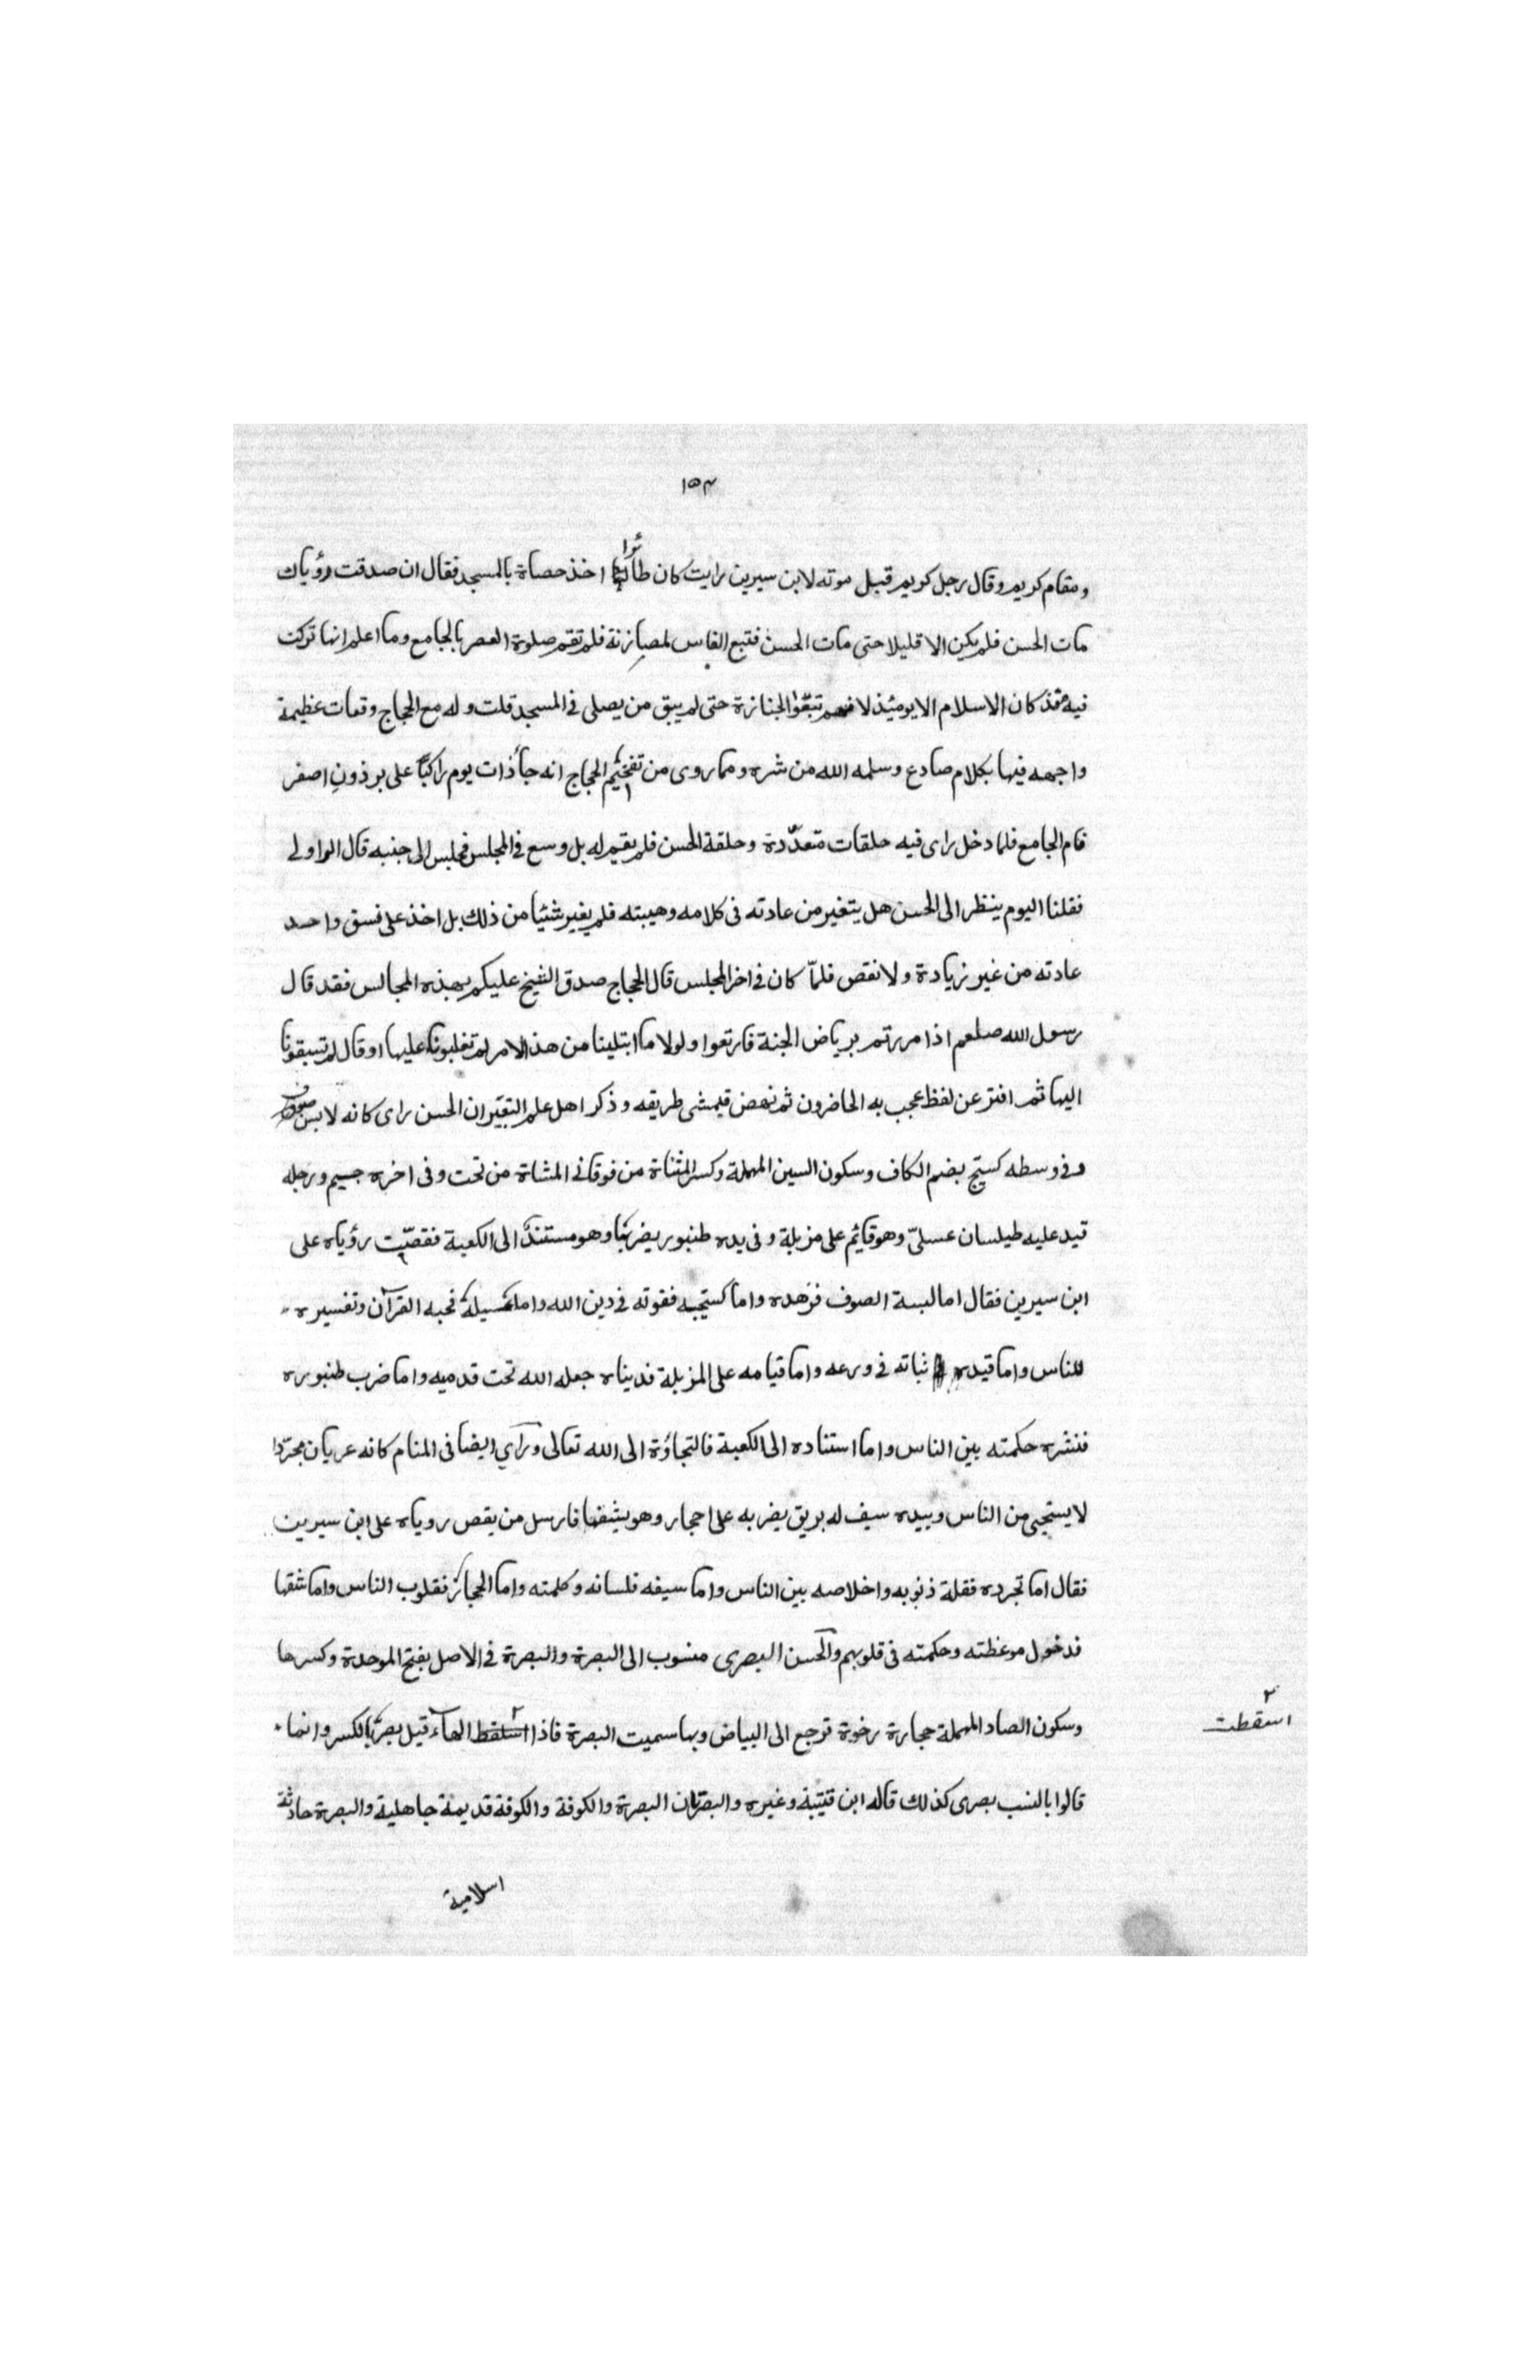 ١٥٣
ومقام كريم وقال رجل كريم قبل موته لابن سيرين رايت كان طائرا اخذ حصاة بالمسجد فقال ان صدقت رؤياك
مات الحسن فلم يكن الا قليلا حتى مات الحسن فتبع الناس لجنازته فلم تقم صلوة العصر بالجامع وما اعلم انها تركت
فيه مذ كان الاسلام الا يومئذ لانهم تبعوا الجنازة حتى لم يبق من يصلى فى المسجد قلت وله مع الحجاج وقعات عظيمة
واجهه فيها بكلام صادع وسلمه الله من شره ومما روى من تفخيم الحجاج انه جأ ذات يوم راكبًا على برذون اصفر
فام الجامع فلما دخل راى فيه حلقات متعدّدة وحلقة الحسن فلم يقم له بل وسع فى المجلس فجلس الى جنبه قال الراوى
فقلنا اليوم ينظر الى الحسن هل يتغير من عادته فى كلامه وهيبته فلم يغير شئيا من ذلك بل اخذ على نسق واحد
عادته من غير زيادة ولا نقص فلمّا كان فى اخر المجلس قال الحجاج صدق الشيخ عليكم بهذه المجالس فقد قال
رسول الله صلعم اذا مررتم برياض الجنة فارتعوا ولولا ما ابتلينا من هذ الامر لم تغلبونا عليها او قال لم تسبقونا
اليها ثم افتر عن لفظ عجب به الحاضرون ثم نهض فمشى طريقه وذكر اهل علم التعبير ان الحسن راى كانه لابس صوف
وفى وسطه كستيج بضم الكاف وسكون السين المهملة وكسر المثناة من فوقانى المشاة من تحت وفى اخره جيم ورجله
قيد عليه طيلسان عسلىّ وهو قائم على مزبلة وفى يده طنبور يضربها وهو مستند الى الكعبة فقصّيت رؤياه على
ابن سيرين فقال اما لبسة الصوف فزهده واما كستيجه فقوته فى دين الله واما عسيله فحبه القرآن وتفسيره
للناس واما قيده ثباته فى ورعه واما قيامه على المزبلة فديناه جعله الله تحت قدميه واما ضرب طنبوره
فنشره حكمته بين الناس واما استناده الى الكعبة فالتجاؤة الى الله تعالى ورآي ايضا فى المنام كانه عريان مجرّدا
لا يستحى من الناس وبيده سيف له بريق يضربه على احجار وهو يشقها فارسل من يقص روياه على ابن سيرين
فقال اما تجرده فقلة ذنوبه واخلاصه بين الناس واما سيفه فلسانه وكلمته واما الحجائر فقلوب الناس واما شقها
فدخول موعظته وحكمته فى قلوبهم والحسن البصرى منسوب الى البصرة والبصرة فى الاصل بفتح الموحدة وكسرها
وسكون الصاد المهملة حجارة رخوة ترجع الى البياض وبها سميت البصرة فاذا اسقط الهاء قيل بصر بالكسر وانما
٢ اسقطت
قالوا بالنسب بصرى كذلك قاله ابن قتيبة وغيره والبصرتان البصرة والكوفة والكوفة قديمة جاهلية والبصرة حادثة
اسلامية